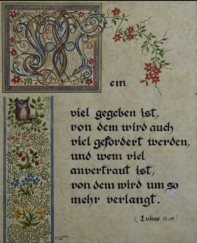 Wem
viel gegeben ist,
von dem wird auch
viel gefordert werden,
und wem viel
anvertraut ist,
von dem wird um so
mehr verlangt.
(Lukas